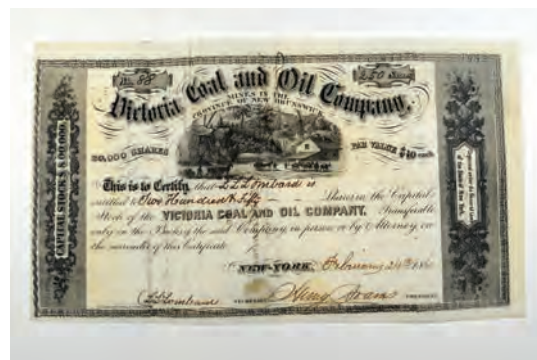 No. 88
250 Shares
Victoria Coal and Oil Company.
MINES IN THE
PROVINCE OF NEW BRUNSWICK
50,000 SHARES
PAR VALUE $10 each.
CAPITAL STOCK $500,000.
Organized under the General Laws
of the State of New York.
This is to Certify, that L L Lombard is
entitled to Two Hundred & Fifty Shares in the Capital
Stock of the VICTORIA COAL AND OIL COMPANY. Transferable
only on the Books of the said Company, in person or by Attorney, on
the surrender of this Certificate
NEW-YORK, February 24th
L L Lombard SECRETARY PRESIDENT